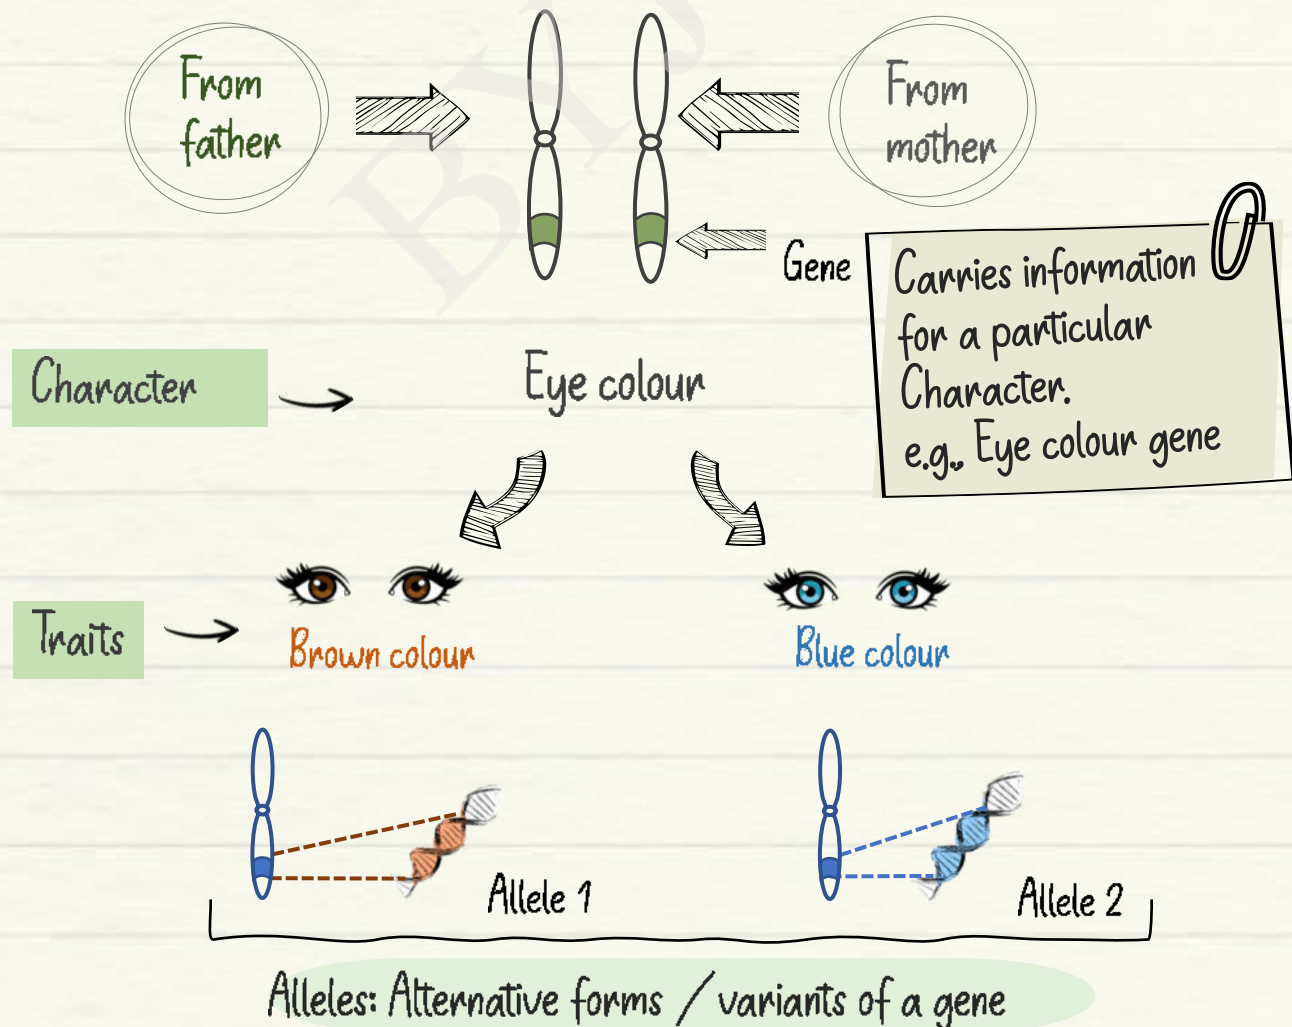 From
father
From
mother
Gene
Carries information
for a particular
Character.
e.g., Eye colour gene
Character
Eye colour
Traits
Brown colour
Blue colour
Allele 1
Allele 2
Alleles: Alternative forms / variants of a gene